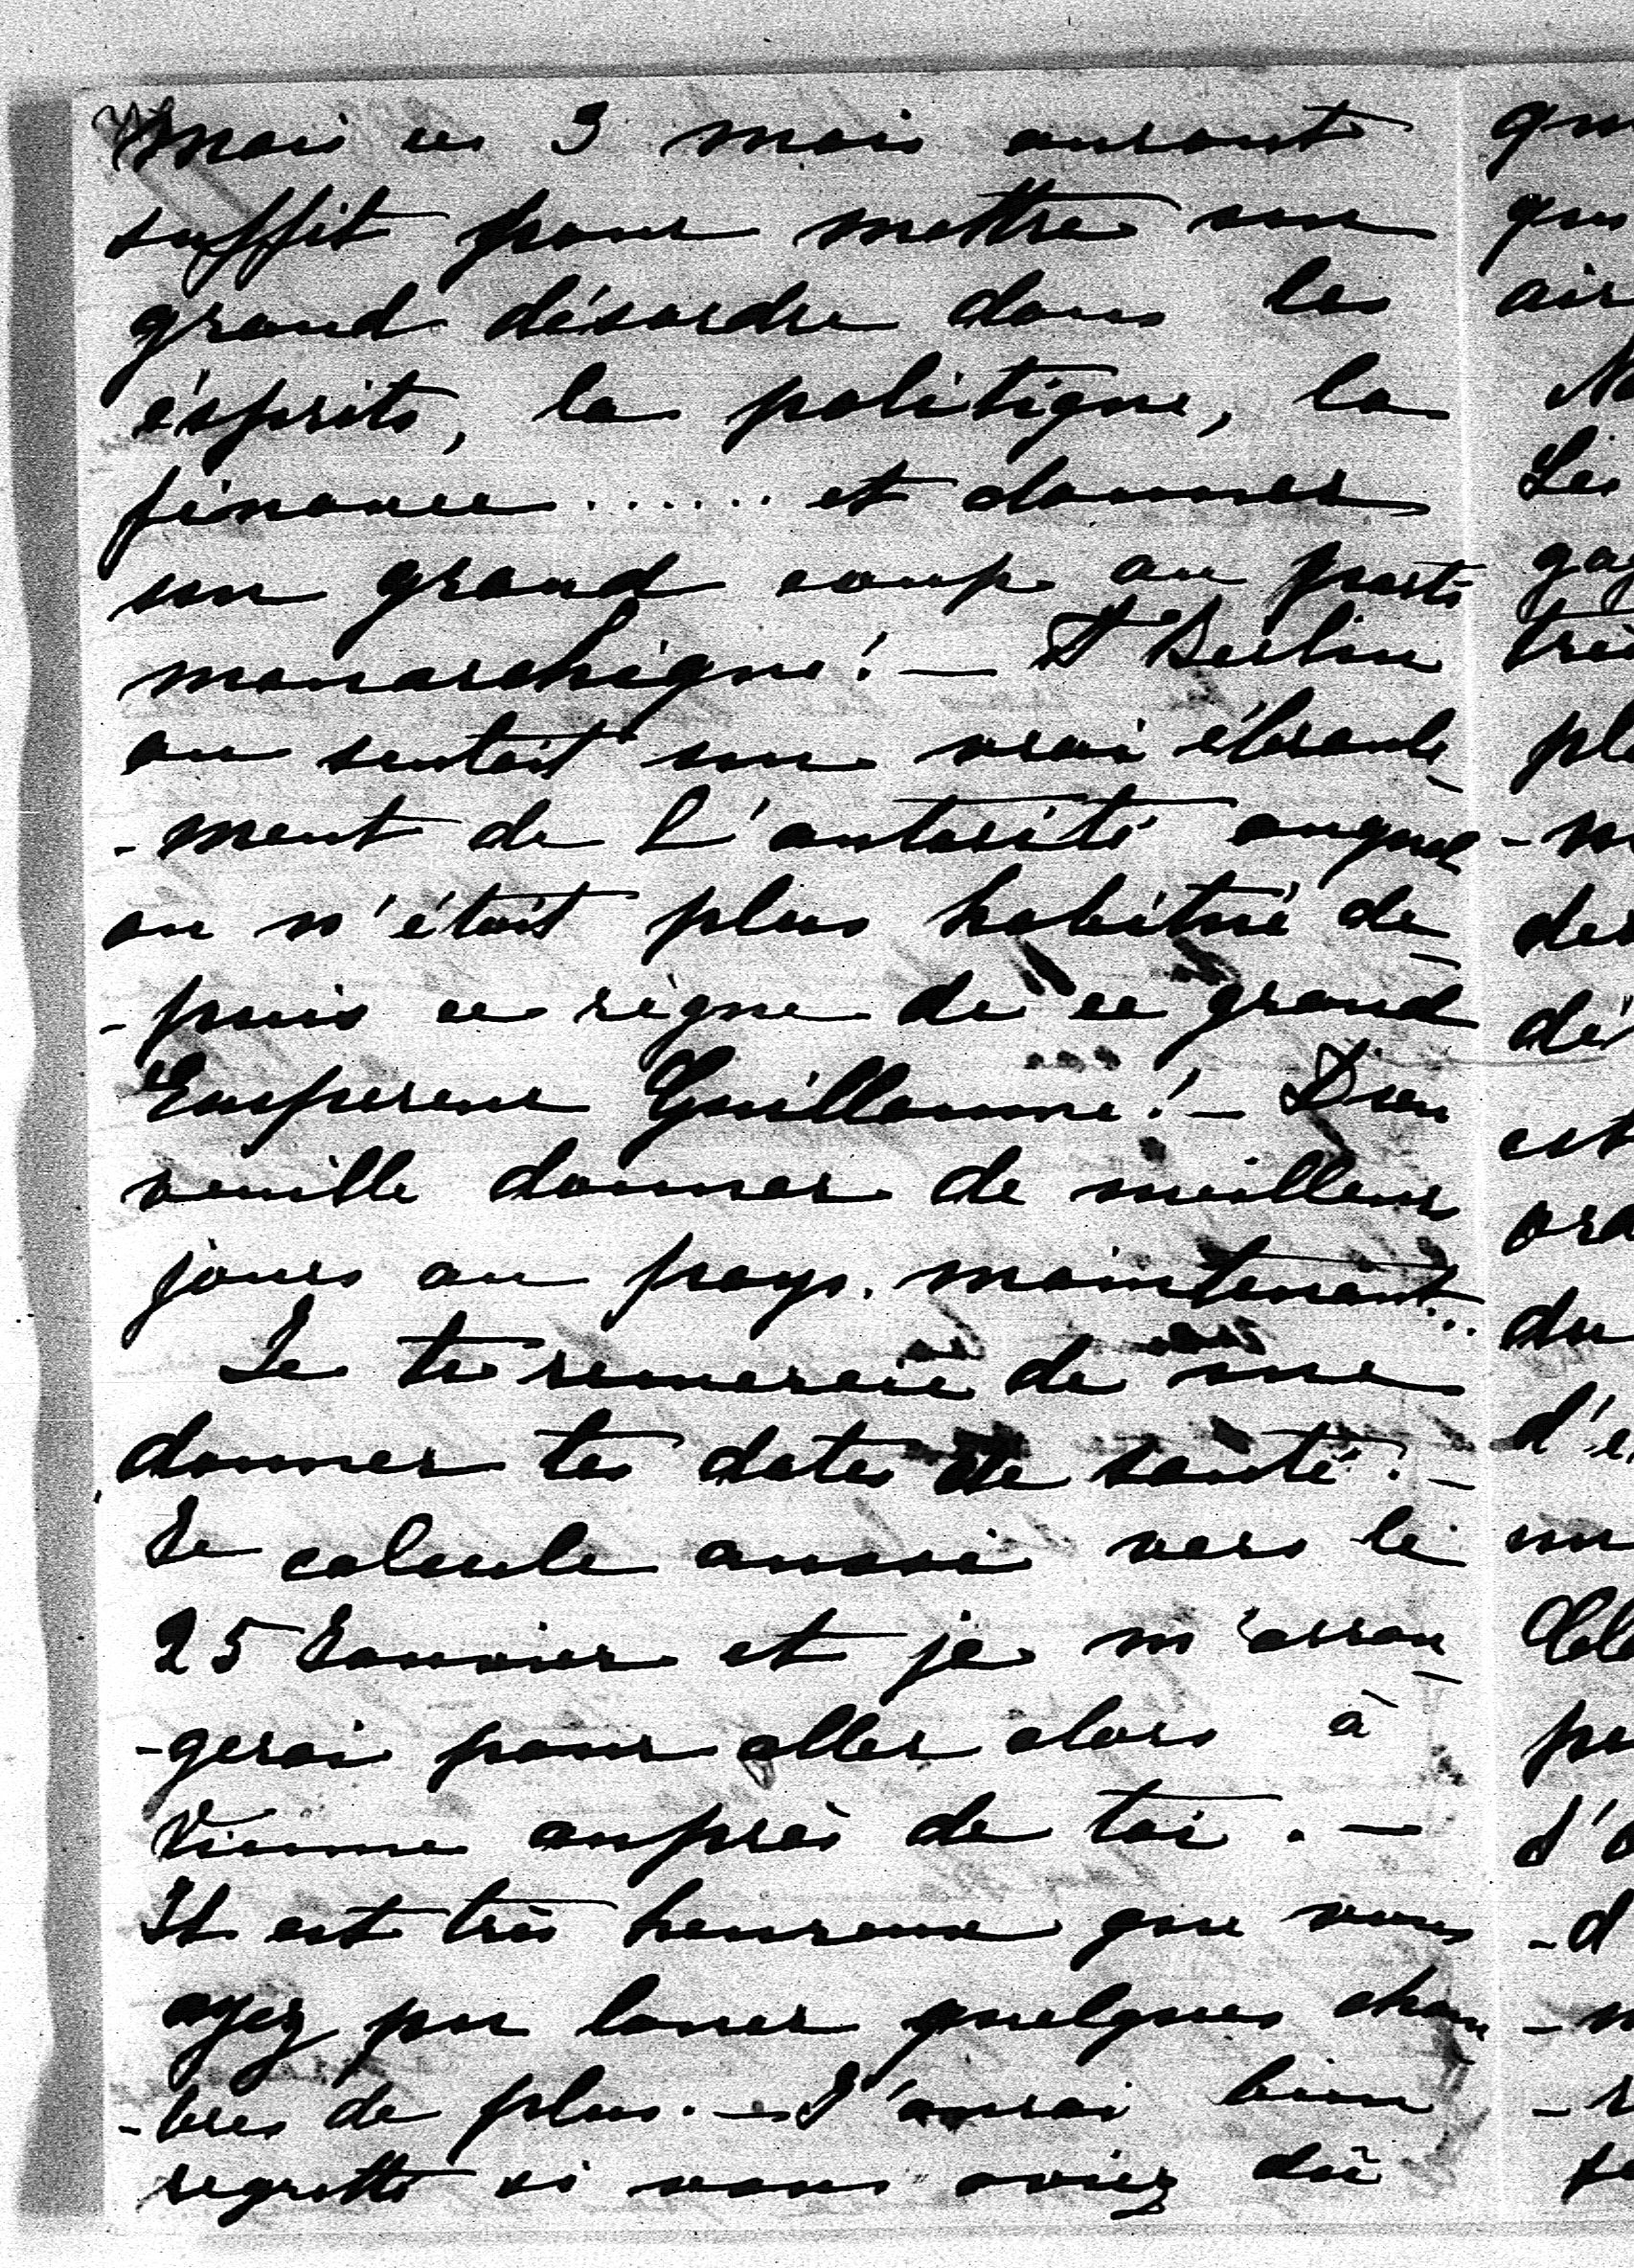 mais ces 3 mois auront
suffit pour mettre un
grand désordre dans les
ésprits, la politique, la
finance ...... et donner
un grand coup au parti
monarchique! — A Berlin
on sentait un vrai ébranle
-ment de l'autorité auquel
on n'était plus habitué de
-puis ce règne de ce grand
Empereur Guillaume! — Dieu
veuille donner de meilleurs
jours au pays. maintenant..
Je te remercie de me
donner tes dates de santé. —
Je calcule aussi vers le
25 Janvier et je m'arran
-gerai pour aller alors à
Vienne auprès de toi. —
Il est très heureux que vous
ayez pu louer quelques cham
-bres de plus. — J'aurai bien
regretté si vous aviez dû